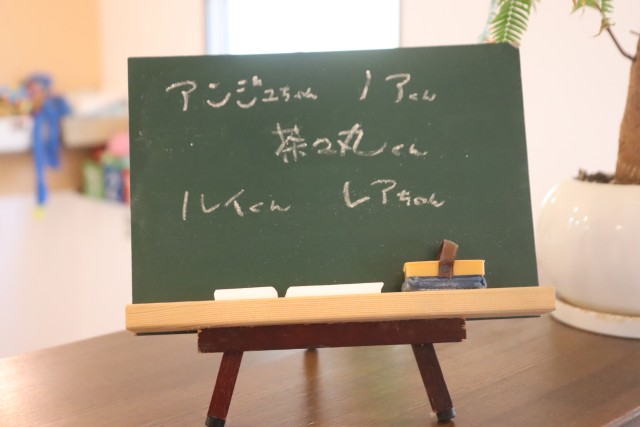 アンジュちゃん ノアくん
茶々丸くん
ルイくん レアちゃん